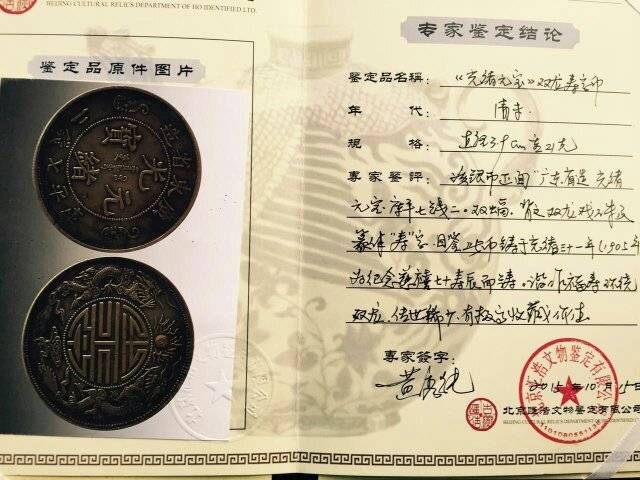 BEIJING CULTURAL RELICS DEPARTMENT OF HO IDENTIFIED LTD.
鉴定品原件图片
廣東省造
光緒元寶
专家鉴定结论
鉴定品名稱：《光绪元宝》双龙寿字币
年 代：清末
规 格：直径3.9cm 重21克
專家鉴評：该银币正面"广东省造 光绪
元宝 库平七钱二、双蝠。背文 双龙戏珠及
篆体"寿"字。此币铸于光绪三十一年(1905年
为纪念慈禧七十寿辰而铸。谐作福寿环绕
双龙。传世稀少，有极高收藏价值
專家签字：
2015年10月15日
北京匯浩文物鉴定有限公司
BEIJING CULTURAL RELICS DEPARTMENT OF HO IDENTIFIED LTD.